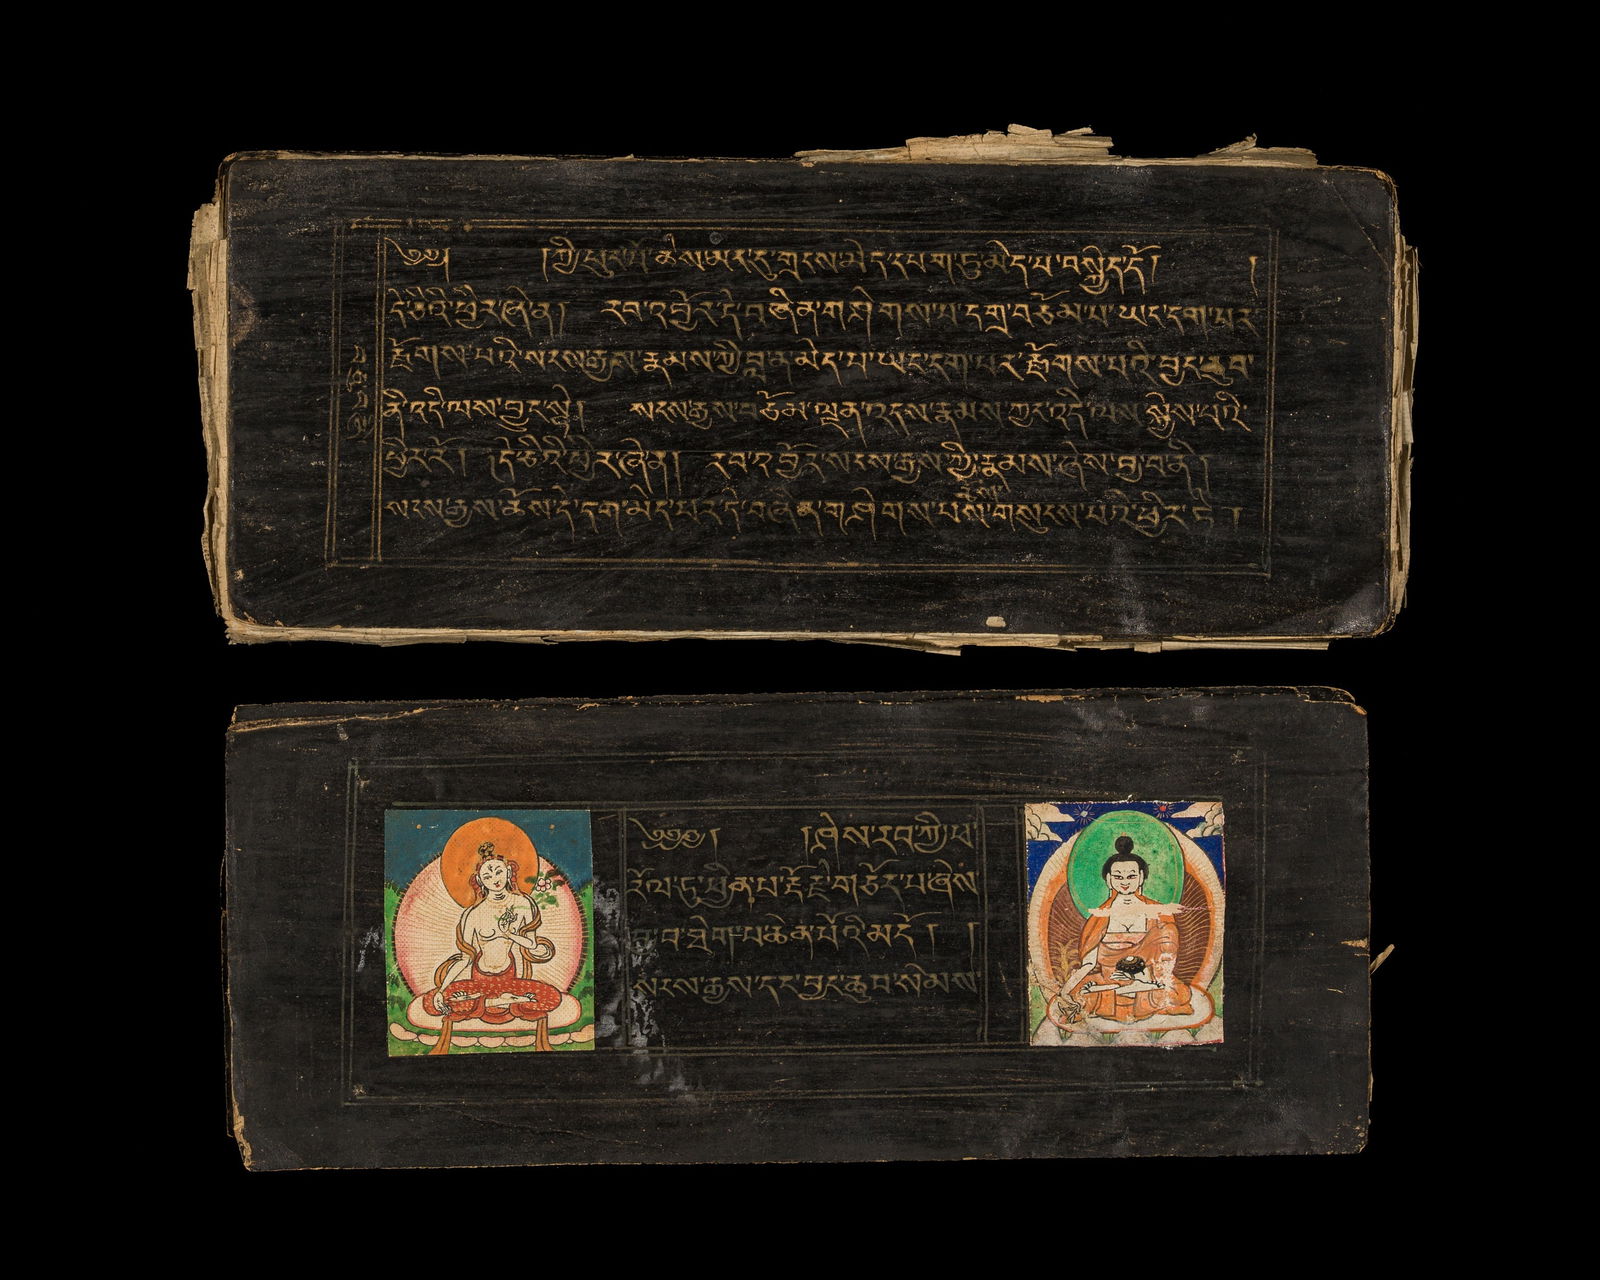 ༄༅། །ཀྱི་ཕུང་པོ་ཚེས་མང་དུ་གྲངས་མེད་དཔག་ཏུ་མེད་པ་བསྐྱེད་དོ། །
དེ་ཅིའི་ཕྱིར་ཞེ་ན། རབ་འབྱོར་དེ་བཞིན་གཤེགས་པ་དགྲ་བཅོམ་པ་ཡང་དག་པར་
རྫོགས་པའི་སངས་རྒྱས་རྣམས་ཀྱི་བླ་ན་མེད་པ་ཡང་དག་པར་རྫོགས་པའི་བྱང་ཆུབ་
ནི་འདི་ལས་བྱུང་སྟེ། སངས་རྒྱས་བཅོམ་ལྡན་འདས་རྣམས་ཀྱང་འདི་ལས་སྐྱེས་པའི་
ཕྱིར་རོ། །དེ་ཅིའི་ཕྱིར་ཞེ་ན། རབ་འབྱོར་སངས་རྒྱས་ཀྱི་རྣམས་ཞེས་བྱ་བ་ནི།
སངས་རྒྱས་ཆོས་དེ་དག་མེད་པར་དེ་བཞིན་གཤེགས་པས་གསུངས་པའི་ཕྱིར་ཏེ །
༄༅༅། །ཤེས་རབ་ཀྱི་ཕ་
རོལ་ཏུ་ཕྱིན་པ་རྡོ་རྗེ་གཅོད་པ་ཞེས་
བྱ་བ་ཐེག་པ་ཆེན་པོའི་མདོ། །
སངས་རྒྱས་དང་བྱང་ཆུབ་སེམས་